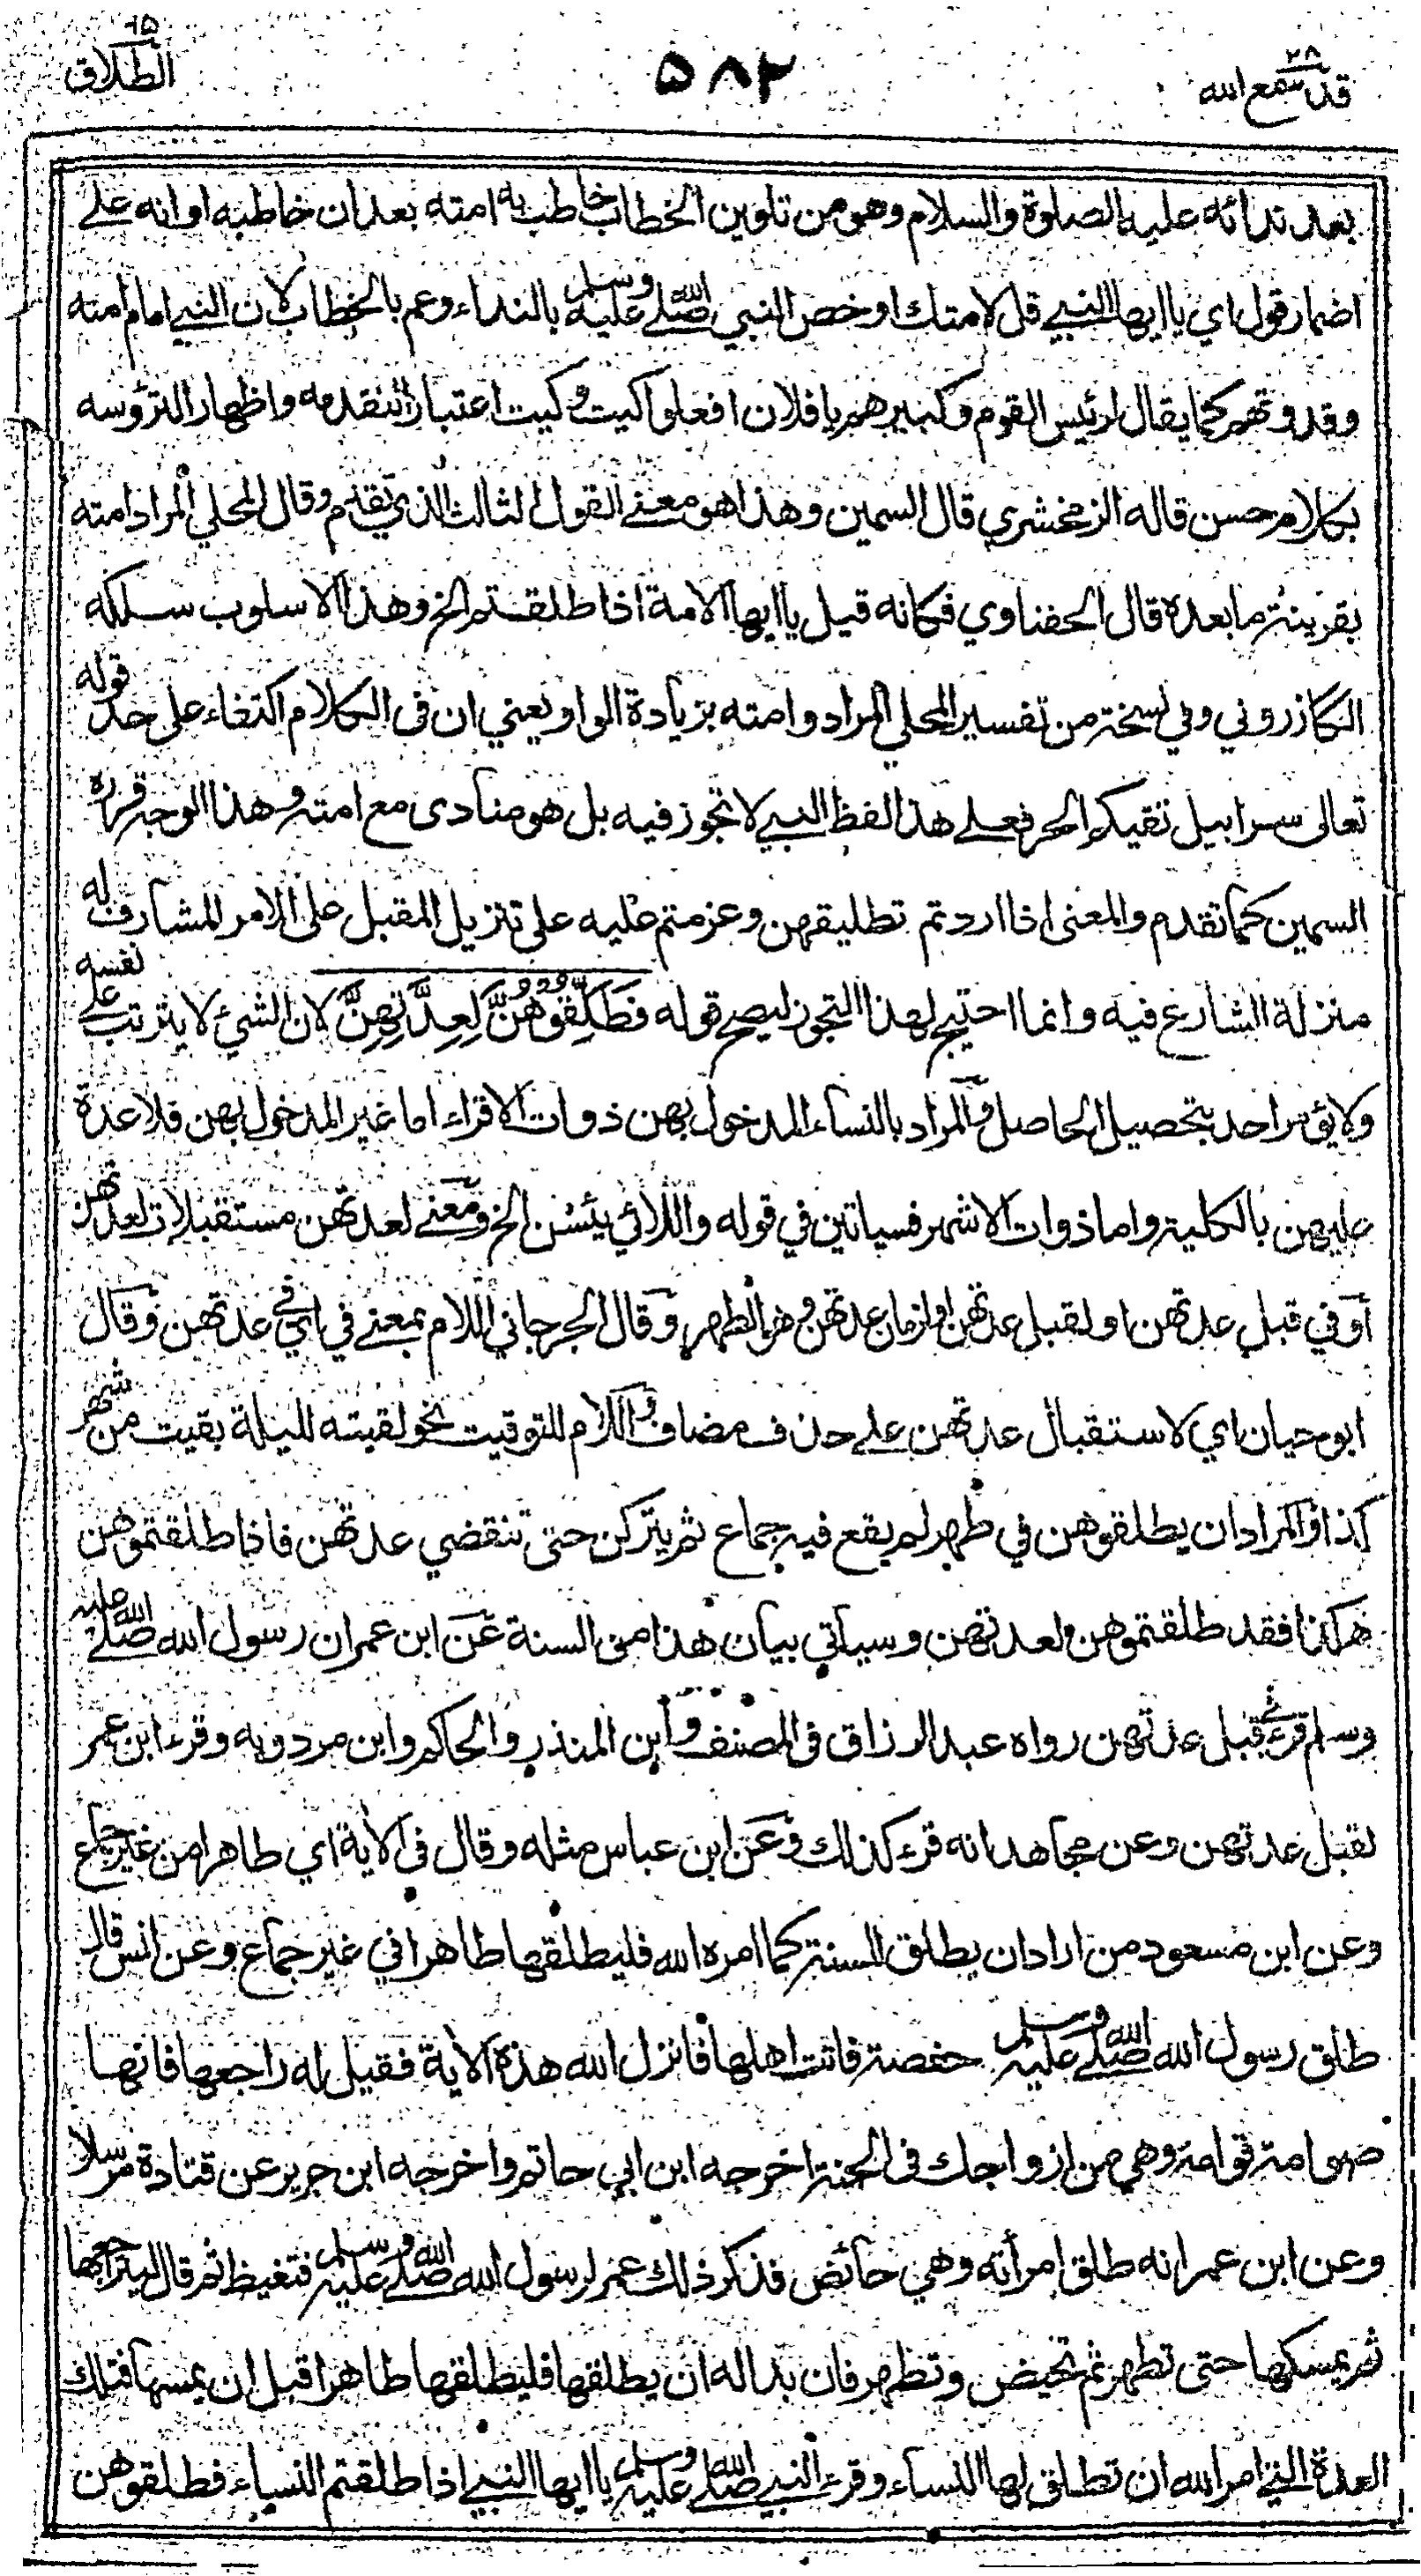 قد سمع الله ٢٨
٥٨٢
الطلاق ٦٥
بعد ندائه عليه الصلوة والسلام وهو من تلوين الخطاب خاطب به امته بعد ان خاطبه او انه على
اضمار قول اي يا ايها النبي قل لامتك او خص النبي صلى الله عليه وسلم بالنداء وعم بالخطاب لان النبي امام امته
وقدوتهم كما يقال لرئيس القوم وكبيرهم يا فلان افعلوا كيت وكيت اعتبارا لتقدمه واظهار الترؤسه
بكلام حسن قاله الزمخشري قال السمين وهذا هو معنى القول الثالث الذي تقدم وقال المحلي المراد امته
بقرينة ما بعده قال الحفناوي فكانه قيل يا ايها الامة اذا طلقتم الخ وهذا الاسلوب سلكه
الكازروني وفي نسخة من تفسير المحلي المراد وامته بزيادة الواو يعني ان في الكلام اكتفاء على حد قوله
تعالى سرابيل تقيكم الحر فعلى هذا لفظ النبي لا تجوز فيه بل هو منادى مع امته وهذا الوجه قرره
السمين كما تقدم والمعنى اذا اردتم تطليقهن وعزمتم عليه على تنزيل المقبل على الامر المشارف له
منزلة الشارع فيه وانما احتيج لهذا التجوز ليصح قوله فَطَلِّقُوهُنَّ لِعِدَّتِهِنَّ لان الشيء لا يترتب على نفسه
ولا يؤمر احد بتحصيل الحاصل والمراد بالنساء المدخول بهن ذوات الاقراء اما غير المدخول بهن فلا عدة
عليهن بالكلية واما ذوات الاشهر فسياتين في قوله واللائي يئسن الخ ومعنى لعدتهن مستقبلات لعدتهن
أو في قبل عدتهن او لقبل عدتهن او لزمان عدتهن وهو الطهر وقال الجرجاني اللام بمعنى في اي في عدتهن وقال
ابو حيان اي لاستقبال عدتهن على حذف مضاف واللام للتوقيت نحو لقيته لليلة بقيت من شهر
كذا والمراد ان يطلقوهن في طهر لم يقع فيه جماع ثم يتركن حتى تنقضي عدتهن فاذا طلقتموهن
هكذا فقد طلقتموهن لعدتهن وسيأتي بيان هذا من السنة عن ابن عمر ان رسول الله صلى الله عليه
وسلم قرء في قبل عدتهن رواه عبد الرزاق في المصنف وابن المنذر والحاكم وابن مردويه وقرء ابن عمر
لقبل عدتهن وعن مجاهد انه قرء كذلك وعن ابن عباس مثله وقال في الاية اي طاهرا من غير جماع
وعن ابن مسعود من اراد ان يطلق للسنة كما امره الله فليطلقها طاهرا في غير جماع وعن انس قال
طلق رسول الله صلى الله عليه وسلم حفصة فاتت اهلها فانزل الله هذه الاية فقيل له راجعها فانها
صوامة قوامة وهي من ازواجك في الجنة اخرجه ابن ابي حاتم واخرجه ابن جرير عن قتادة مرسلا
وعن ابن عمر انه طلق امرأته وهي حائض فذكر ذلك عمر لرسول الله صلى الله عليه وسلم فتغيظ ثم قال ليراجعها
ثم يمسكها حتى تطهر ثم تحيض وتطهر فان بدا له ان يطلقها فليطلقها طاهرا قبل ان يمسها فتلك
العدة التي امر الله ان تطلق لها النساء وقرء النبي صلى الله عليه وسلم يا ايها النبي اذا طلقتم النساء فطلقوهن